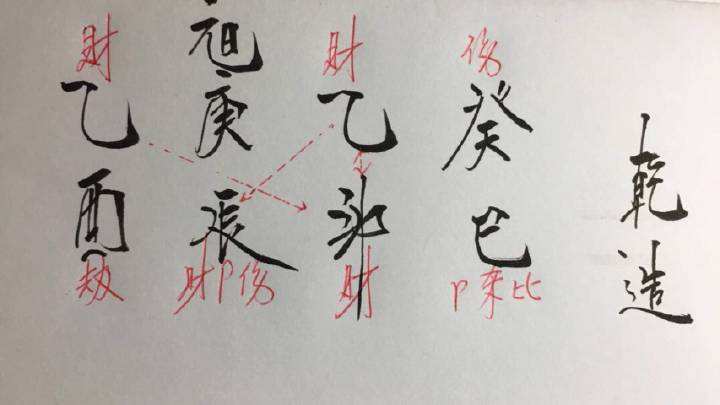 乾造
伤
癸巳
P杀比
财
乙卯
财
庚辰
财P伤
财
乙酉
劫